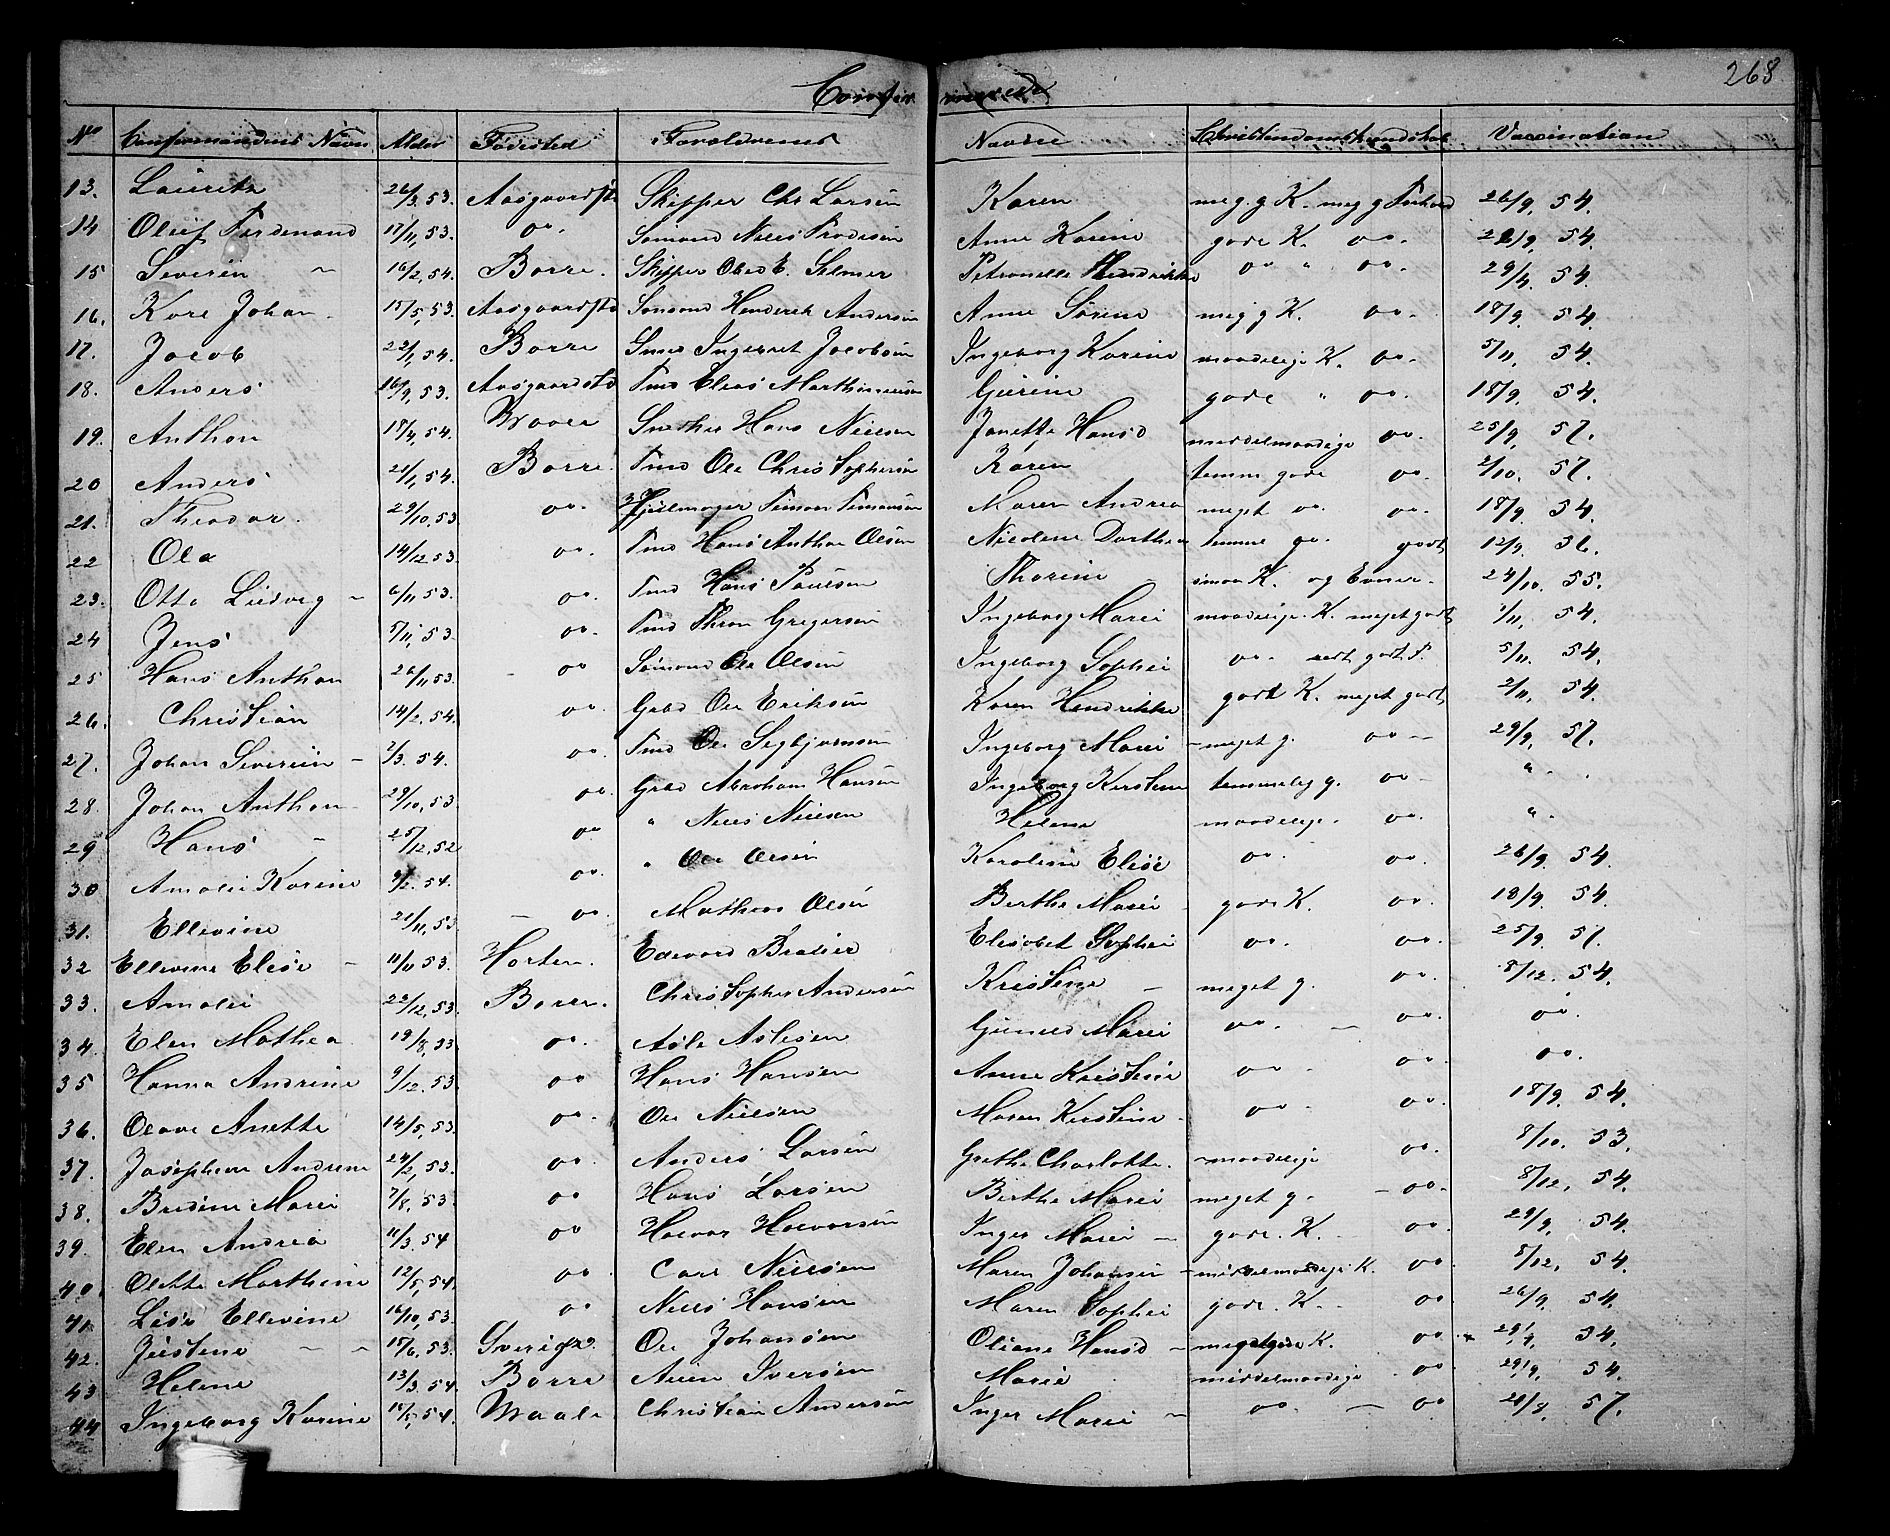 268
Confirmerede
No Confirmandens Navn Alder Fødested Forældrenes Navne Christendomskundskab Vaccination
13. Lauritz 26/3, 53. Aasgaardstr Skipper Chr Larsen Karen meg. g K. meg g Forhold 26/9, 54.
14 Oluf Ferdinand 17/11, 53. do. Sømand Niels Karine gode K. do. 54.
15 Severin 16/2, 54. Borre. Skipper Ole E. Petronelle Hendrikke do " do. 54.
16. Kare Johan. 15/5, 53. Aasgaardstr Sømand Henderik Andersen Anne Sørine meg g K. do. 18/9. 54.
17. Jacob 22/1, 54. Borre Ingebret Jacobsen Ingeborg Karine maadelige K. do. 5/11. 54.
18. Anders 16/9, 53. Aasgaardstr Tmd Elias Marthinusen Gurine gode " do. 18/9. 54.
19. Anthon 18/4, 54. Waale Hans Nielsen Janette Hansd middelmaadige do. 25/9, 57.
20 Anders 21/1, 54. Borre. Tmd Ole Christophersen Karen temm gode do. 2/10. 57.
21. Theodor. 29/10, 53 do. Hjulmager Simon Simonsen Maren Andrea meget do. do. 18/9. 54.
22 Ole 14/12, 53. do. Tmd Hans Anthon Olsen Nicoline Dorthea temme go. godt 12/9. 56.
23. Otto Ludvig - 6/11 53. do. Tmd Hans Paulsen Thorine smaa K. og Evner. 24/10. 55.
24 Jens 5/11, 53. do. Tmd Thron Gregersen Ingeborg Marie maadelige. K. meget godt 1/11, 54.
25 Hans Anthon 26/11, 53. do Sømand Ole Olsen Ingeborg Sophie do. godt F. 5/11. 54.
26. Christian 14/2, 54. do. Gbd Ole Eriksen Karen Hendrikke godt K. meget godt 2/11, 54.
27. Johan Severin - 2/3. 54. do. Tmd Ole Segbjørnsen Ingeborg Marie - meget g. do - 29/9, 57.
28. Johan Anthon 29/10, 53. do. Gbd Abraham Hansen Ingeborg Kirstine temmelig g. do - ".
29 Hans - 25/12, 52 do " Niels Nielsen Helene maadelige. do. ".
30 Amalie Karine 54. do. " Ole Olsen Karoline Elise do. do. 26/9. 54.
31. Ellevine 21/11, 53 - do. Mathias Olsen Berthe Marie - gode K. do. 18/9. 54.
32 Ellevine Elise - 11/11 53. Horten. Edevard Elisabet Sophie do. do. 25/9. 57.
33. Amalie 22/12, 53. Borre. Christopher Andersen Kristine - meget g. do. 8/12. 54.
34. Elen Mathea 19/8, 53. do. Asle Aslesen Gunild Marie do. - do. do.
35 Hanna Andrine 9/12. 53 do Hans Hansen Anne Kristine do. do. do.
36. Olave Anette 14/5, 53. do. Ole Nielsen Maren Kirstine - do. do. 18/9. 54.
37. Josephine Andrine 24/2, 53. do. Anders Larsen Grethe Charlotte. - maadelige do. 8/10. 53.
38. Bredine Marie 7/8, 53. do Hans Larsen Berthe Marie meget g. - do. 8/12, 54.
39. Elen Andrea 11/3. 54 do Halvor Halvorsen Inger Marie - gode. K. do. 29/9. 54.
40. Olette Marthine 12/5, 54. do. Carl Nielsen Maren Johansen - middelmaadige K. do. 8/12, 54.
41. Lise Ellevine 16/10, 53. do Niels Hansen Maren Sophie gode. K. - do. 26/9. 54.
42. Justine - - 15/6, 53. Sverige. Ole Johansen Oliane Hansd - K. do. 54.
43 Helene 13/3, 54. Borre Iversen Marie middelmaadige. do. 29/9, 54.
44 Ingeborg Karine 54. Waale Christian Andersen Inger Marie - do. - do. 57.